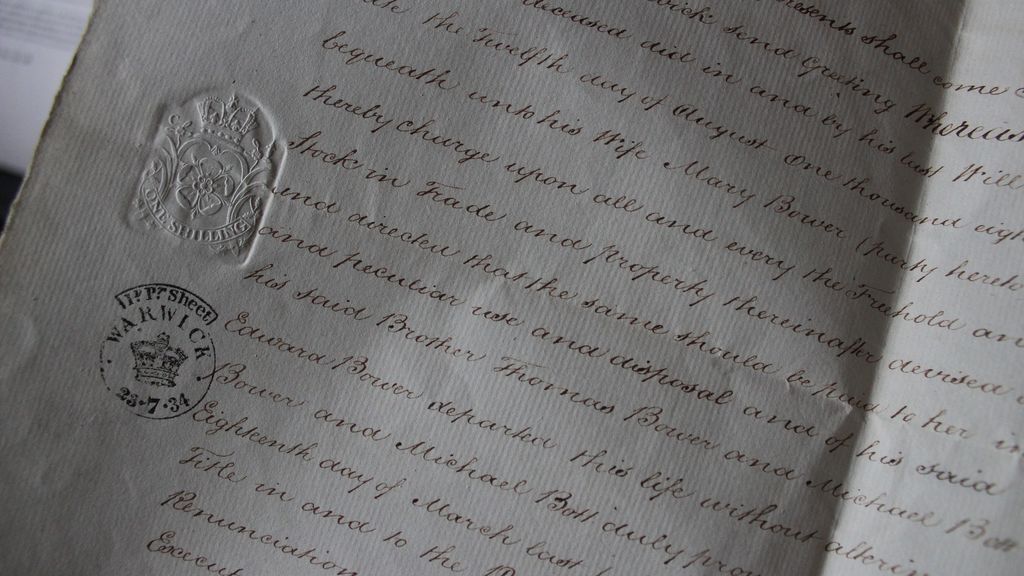 Presents shall come
send Greeting Whereas
deceased did in and by his last Will
the Twelfth day of August One thousand eight
bequeath unto his Wife Mary Bower (party hereto
thereby charge upon all and every the Freehold an
Stock in Trade and property thereinafter devised
and directed that the same should be paid to her
and peculiar use and disposal and of his said
his said Brother Thomas Bower and Michael Bott
Edward Bower departed this life without alterin
Bower and Michael Bott duly prov
Eighteenth day of March last
Title in and to the
Renunciation
Execut
ONE SHILLING
Sheet
WARWICK
23·7·34